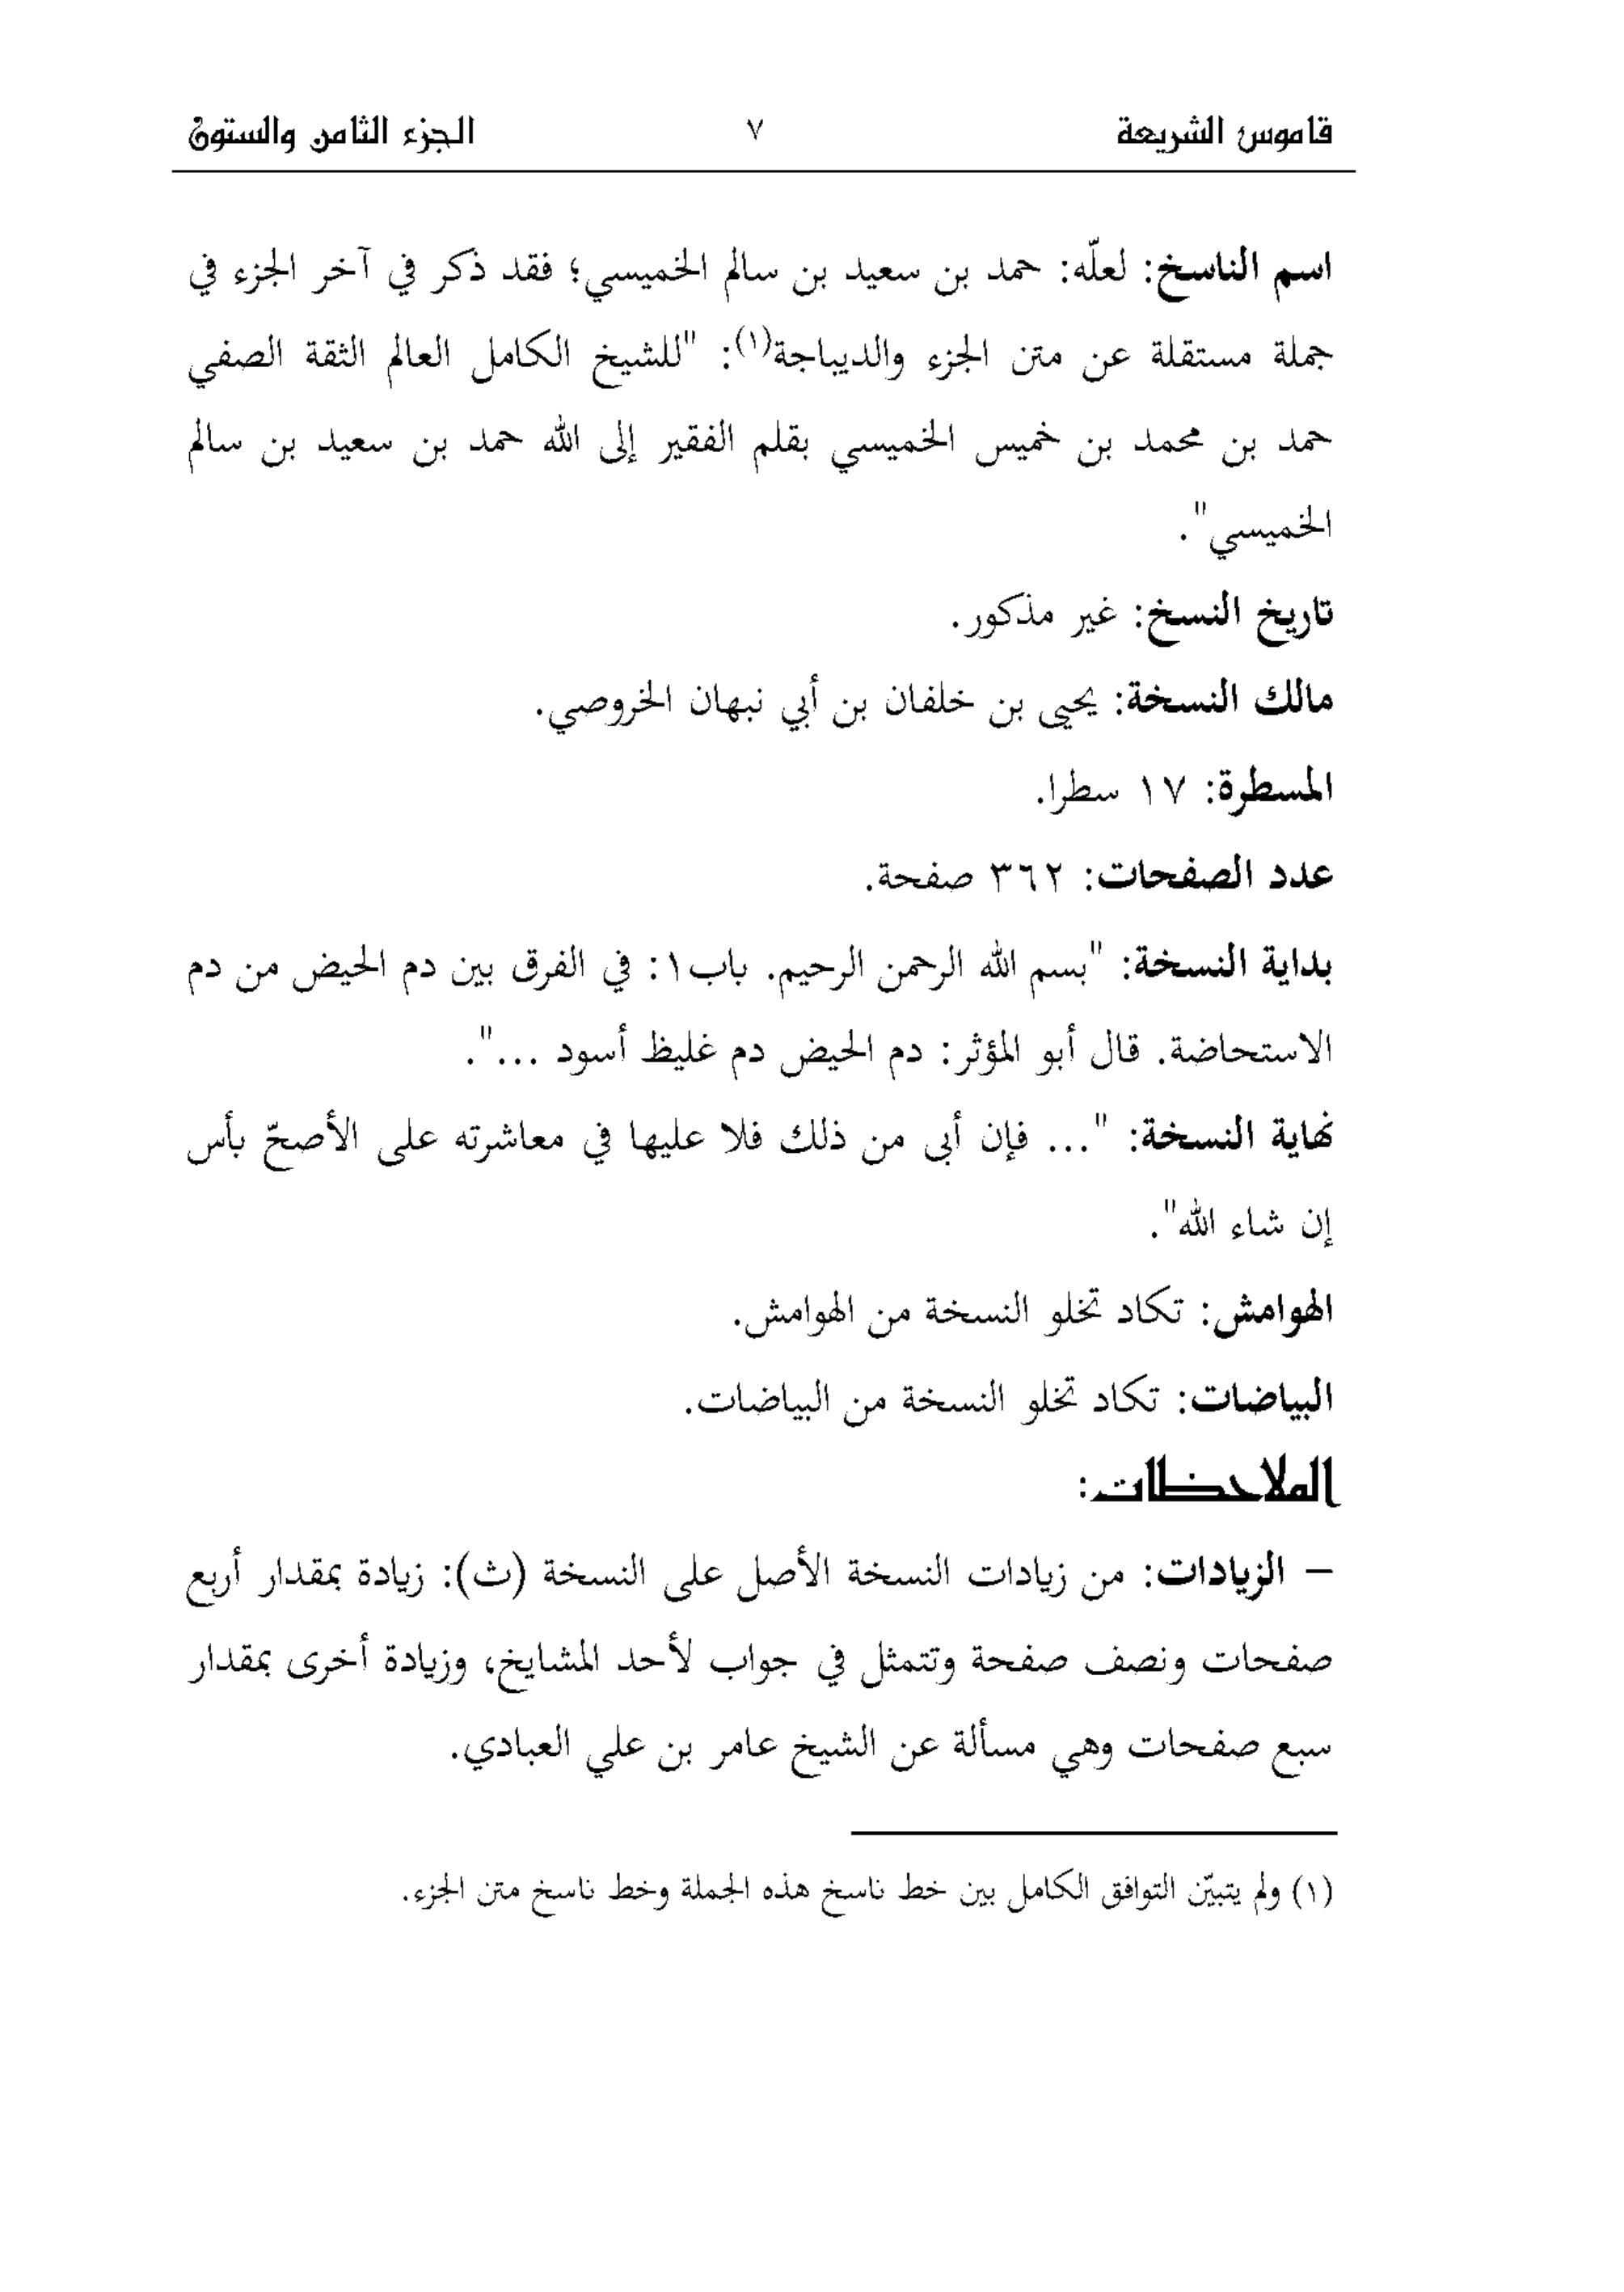 قاموس الشريعة ٧ الجزء الثامن والستون
اسم الناسخ: لعلّه: حمد بن سعيد بن سالم الخميسي؛ فقد ذكر في آخر الجزء في
جملة مستقلة عن متن الجزء والديباجة(١): "للشيخ الكامل العالم الثقة الصفي
حمد بن محمد بن خميس الخميسي بقلم الفقير إلى الله حمد بن سعيد بن سالم
الخميسي".
تاريخ النسخ: غير مذكور.
مالك النسخة: يحيى بن خلفان بن أبي نبهان الخروصي.
المسطرة: ١٧ سطرا.
عدد الصفحات: ٣٦٢ صفحة.
بداية النسخة: "بسم الله الرحمن الرحيم. باب١: في الفرق بين دم الحيض من دم
الاستحاضة. قال أبو المؤثر: دم الحيض دم غليظ أسود ...".
نهاية النسخة: "... فإن أبى من ذلك فلا عليها في معاشرته على الأصحّ بأس
إن شاء الله".
الهوامش: تكاد تخلو النسخة من الهوامش.
البياضات: تكاد تخلو النسخة من البياضات.
الملاحظات:
– الزيادات: من زيادات النسخة الأصل على النسخة (ث): زيادة بمقدار أربع
صفحات ونصف صفحة وتتمثل في جواب لأحد المشايخ، وزيادة أخرى بمقدار
سبع صفحات وهي مسألة عن الشيخ عامر بن علي العبادي.
(١) ولم يتبيّن التوافق الكامل بين خط ناسخ هذه الجملة وخط ناسخ متن الجزء.